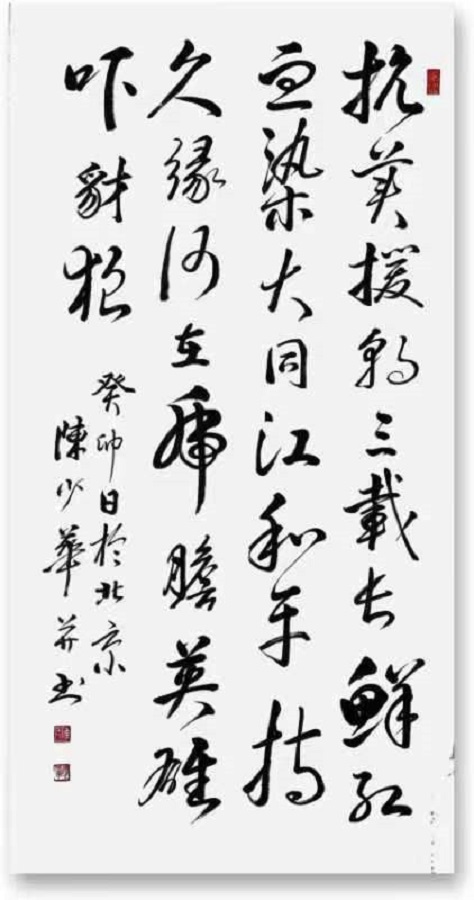 抗美援朝三載长鮮红
血染大同江和平持
久緣何在虎膽英雄
吓豺狼
癸卯日於北京
陳少華并书